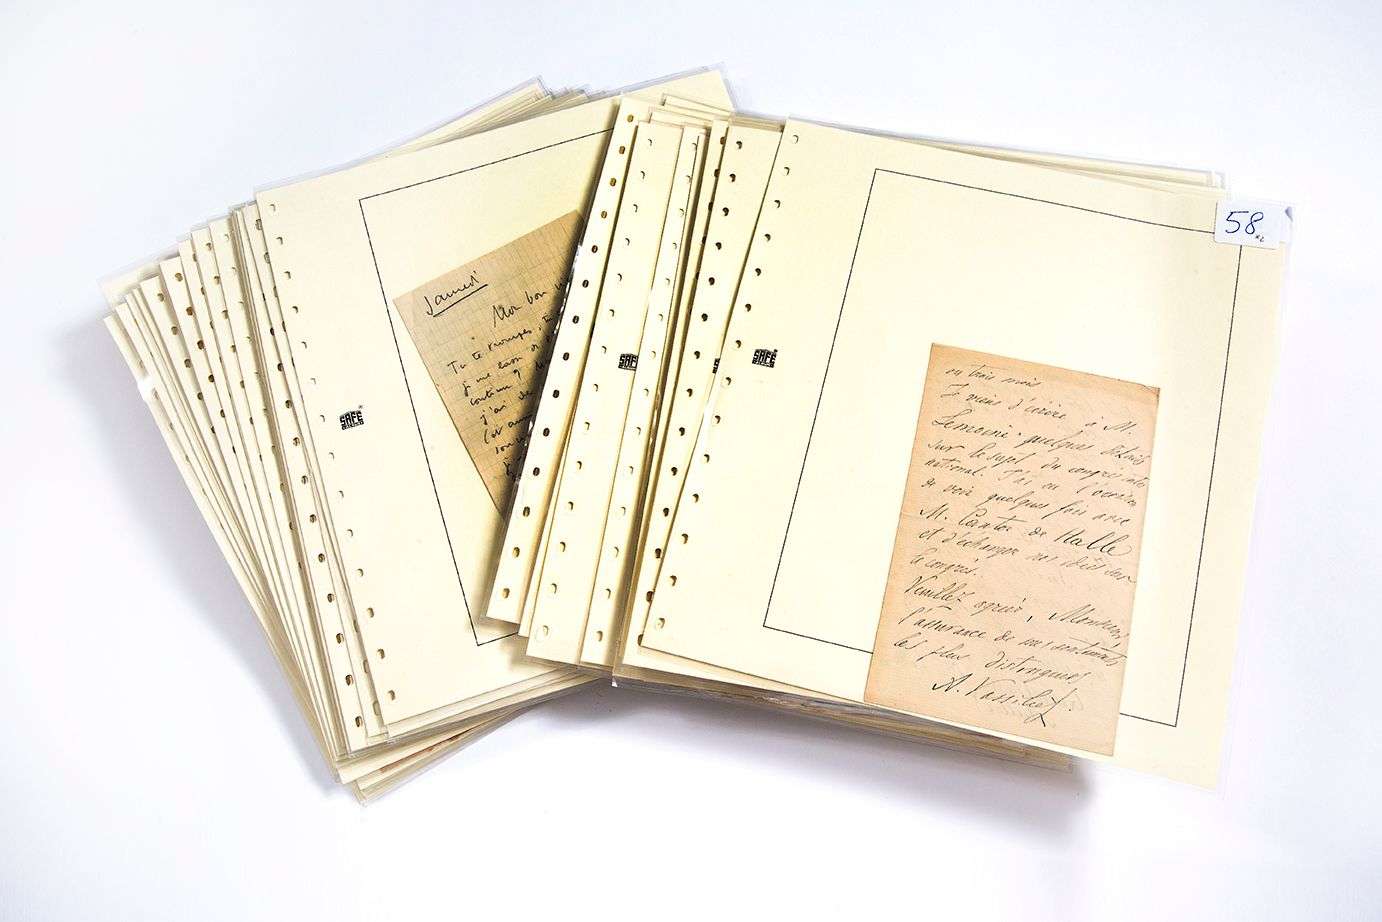 Samedi
Mon bon
Tu te trompes, tu
j'ai
SAFE
SAFE
SAFE
58
ou trois mois
Je viens d'écrire à M.
Lemoine quelques détails
sur le sujet du congrès inter
national. J'ai eu l'occasion
de voir quelques fois avec
M. Cantor de Halle
et d'échanger nos idées sur
le congrès.
Veuillez agréer, Monsieur,
l'assurance de mes sentiments
les plus distingués
A. Vassilief.